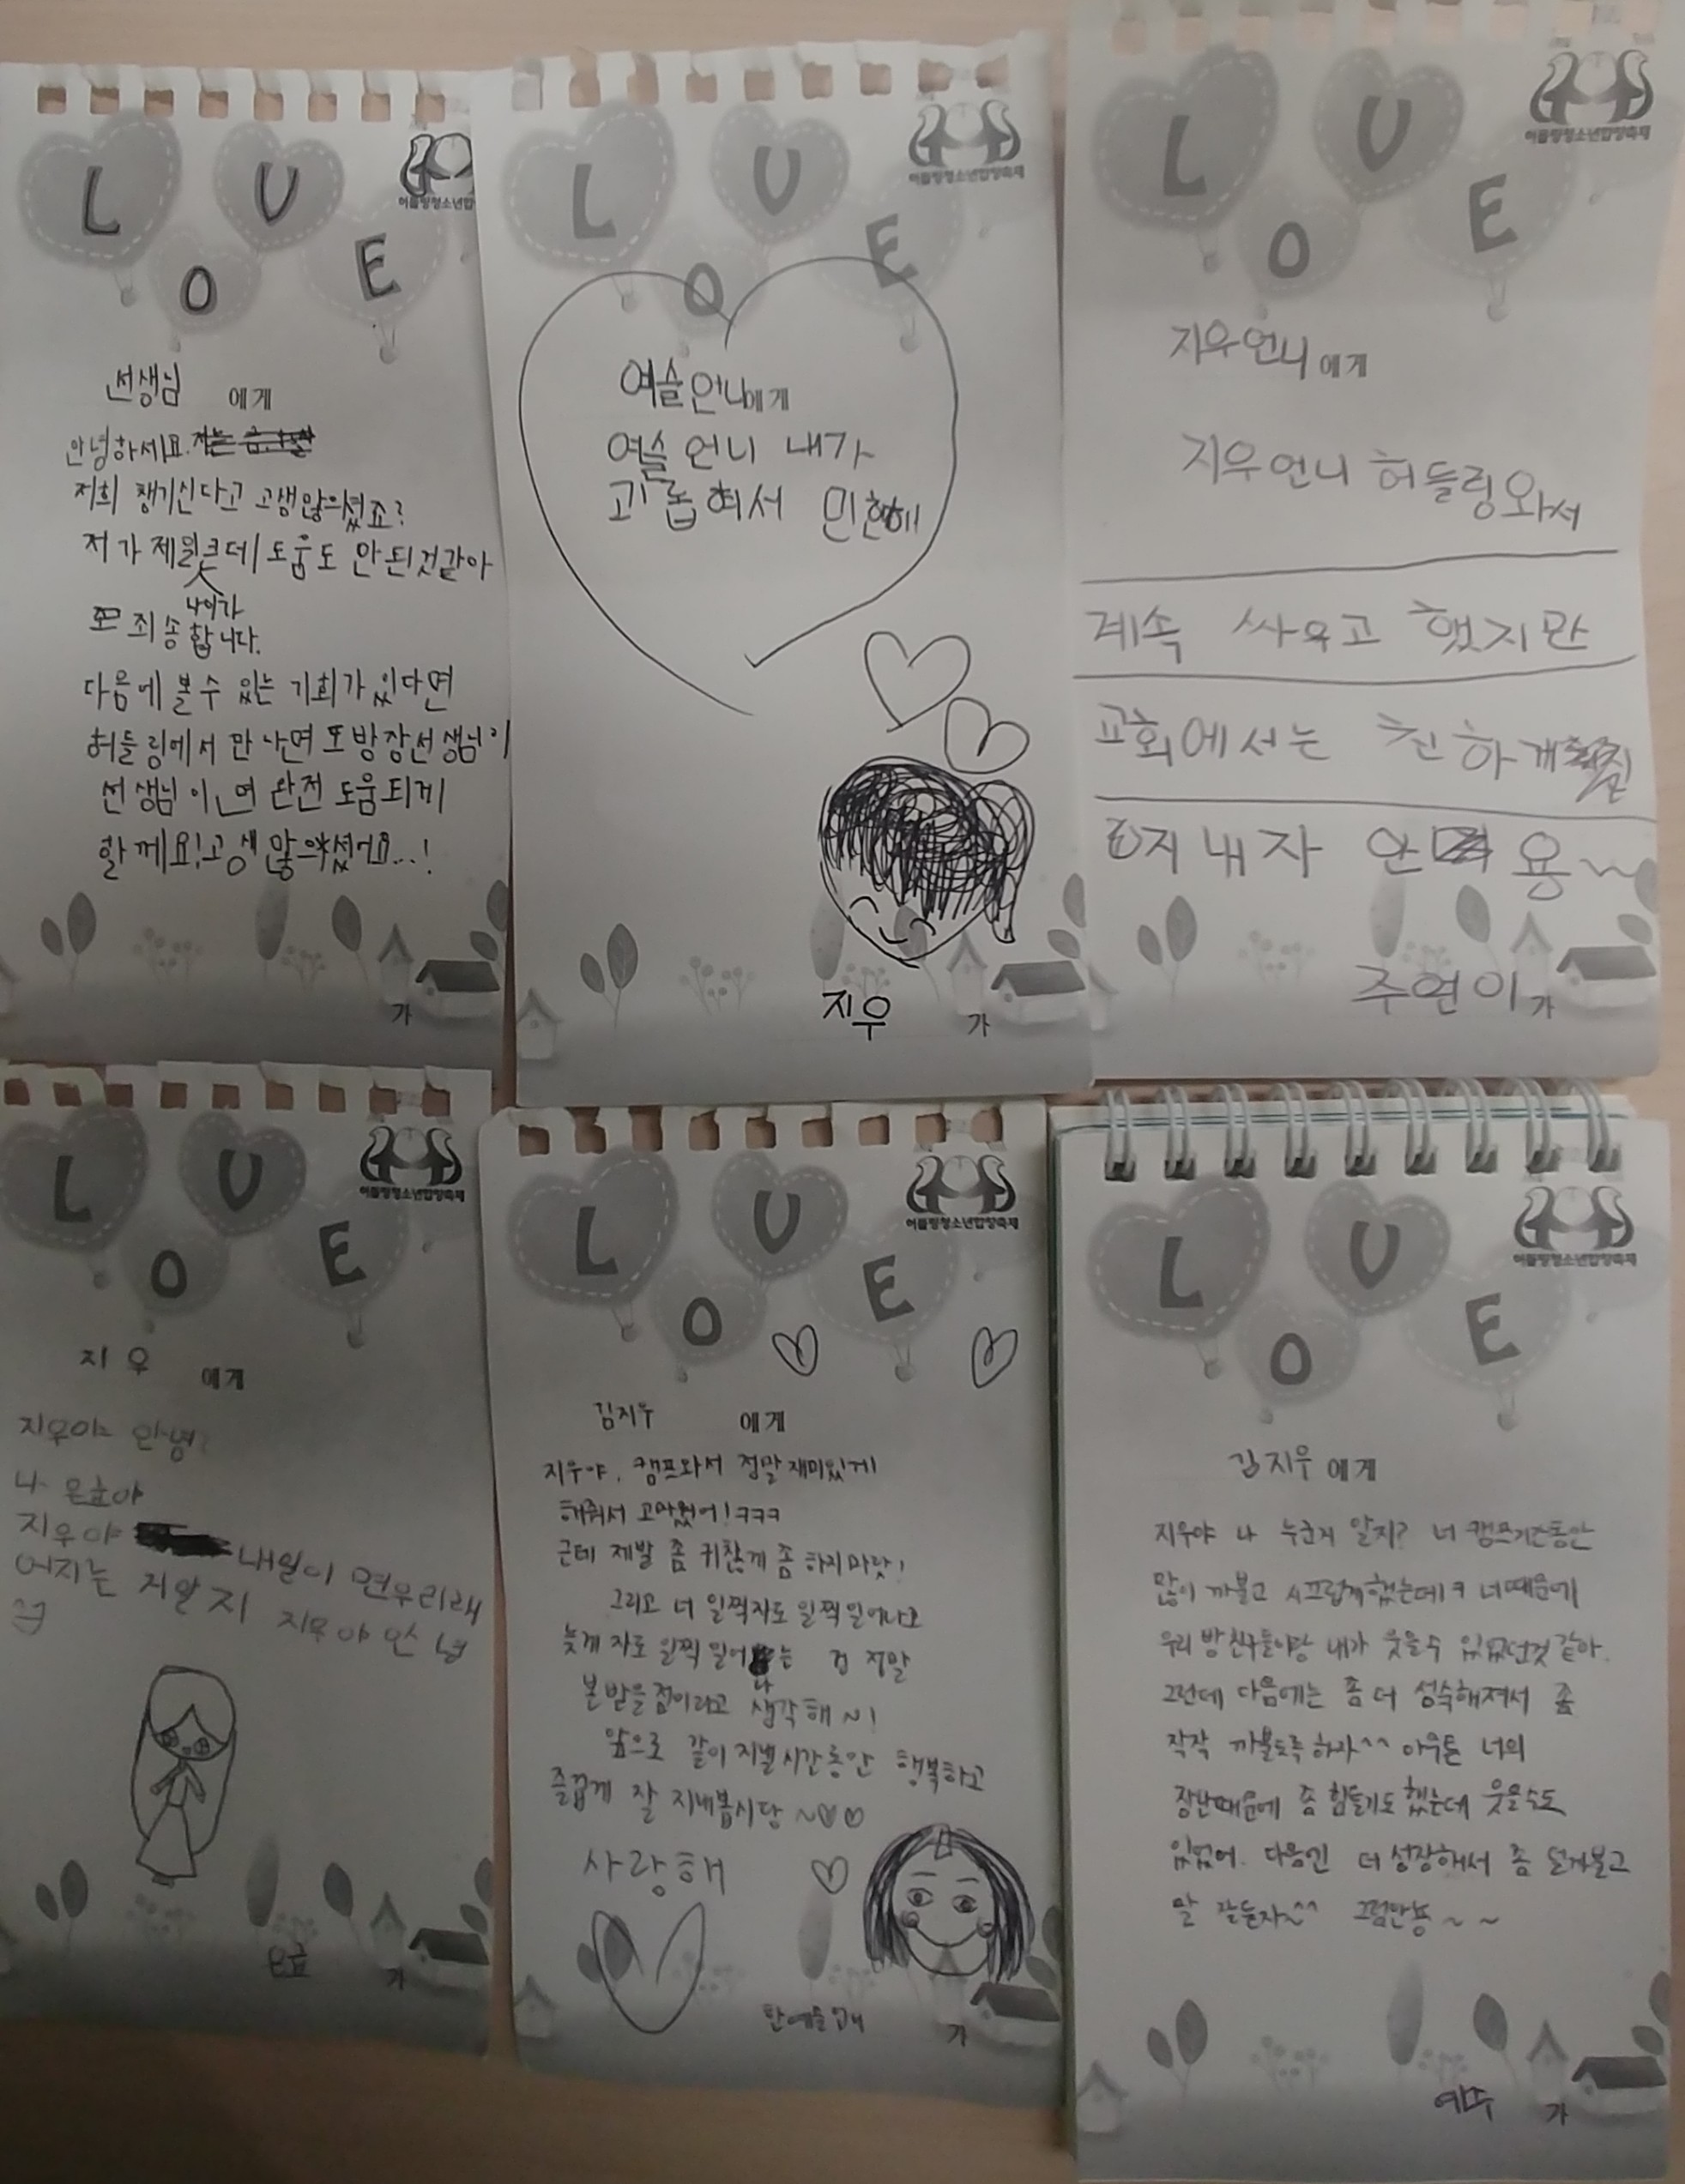 L U
O E
선생님 에게
안녕하세요.
저희 챙기신다고 고생많으셨죠?
저가 제일큰데 도움도 안된것같아
나이가
죄송합니다.
다음에 볼수 있는 기회가 있다면
허들링에서 만나면 또 방장선생님이
선생님이면 완전 도움되게
할께요! 고생많으셨어요...!
가
L U
O E
허들링청소년합창축제
예슬언니에게
예슬언니 내가
괴롭혀서 민현해!
지우 가
L U
O E
허들링청소년합창축제
지우언니에게
지우언니 허들링와서
계속 싸우고 했지만
교회에서는 친하게
지내자 안용~
주연이가
L U
O E
허들링청소년합창축제
지우 에게
지우야 안녕?
나 은효야
지우야 내일이 면우리래
어지는 지알지 지우야 안녕
은효 가
L U
O E
허들링청소년합창축제
김지우 에게
지우야, 캠프와서 정말 재미있게
해줘서 고마웠어! ㅋㅋㅋ
근데 제발 좀 귀찮게 좀 하지마랏!
그리고 너 일찍자도 일찍일어나고
늦게 자도 일찍 일어나는 건 정말
본받을점이라고 생각해~!
앞으로 같이 지낼시간동안 행복하고
즐겁게 잘 지내봅시당~♡♡
사랑해
가
L U
O E
허들링청소년합창축제
김지우에게
지우야 나 누군지 알지? 너 캠프기간동안
많이 까불고 시끄럽게했는데ㅋ 너때문에
우리 방친구들이랑 내가 웃을수 있었던것 같아.
그런데 다음에는 좀 더 성숙해져서 좀
작작 까불도록하자^^ 아무튼 너의
장난때문에 좀 힘들기도 했는데 웃을수도
있었어. 다음엔 더 성장해서 좀 덜까불고
말 잘듣자^^ 그럼안뇽~~
가